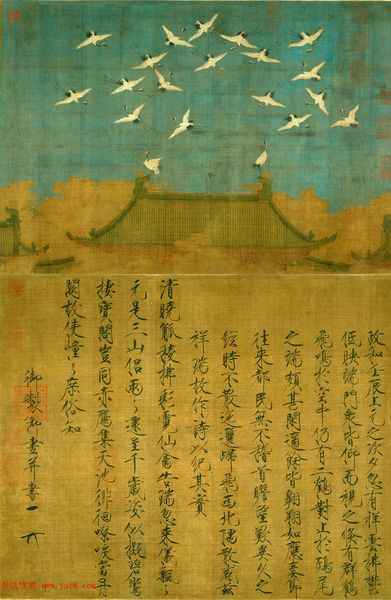 政和壬辰上元之次夕忽有祥雲拂鬱
低映端門眾皆仰而視之倏有群鶴
飛鳴於空中仍有二鶴對止於鴟尾
之端頗甚閒適餘皆翱翔如應奏節
往來都民無不稽首瞻望歎異久之
經時不散迤邐歸飛西北隅散感茲
祥瑞故作詩以紀其實
清曉觚稜拂彩霓仙禽告瑞忽來儀飄〻
元是三山侶兩〻還呈千歲姿似擬碧鸞
棲寶閣豈同赤雁集天池徘徊嘹唳當丹
闕故使憧〻庶俗知
御製御畫并書
书法欣赏 www.yac8.com